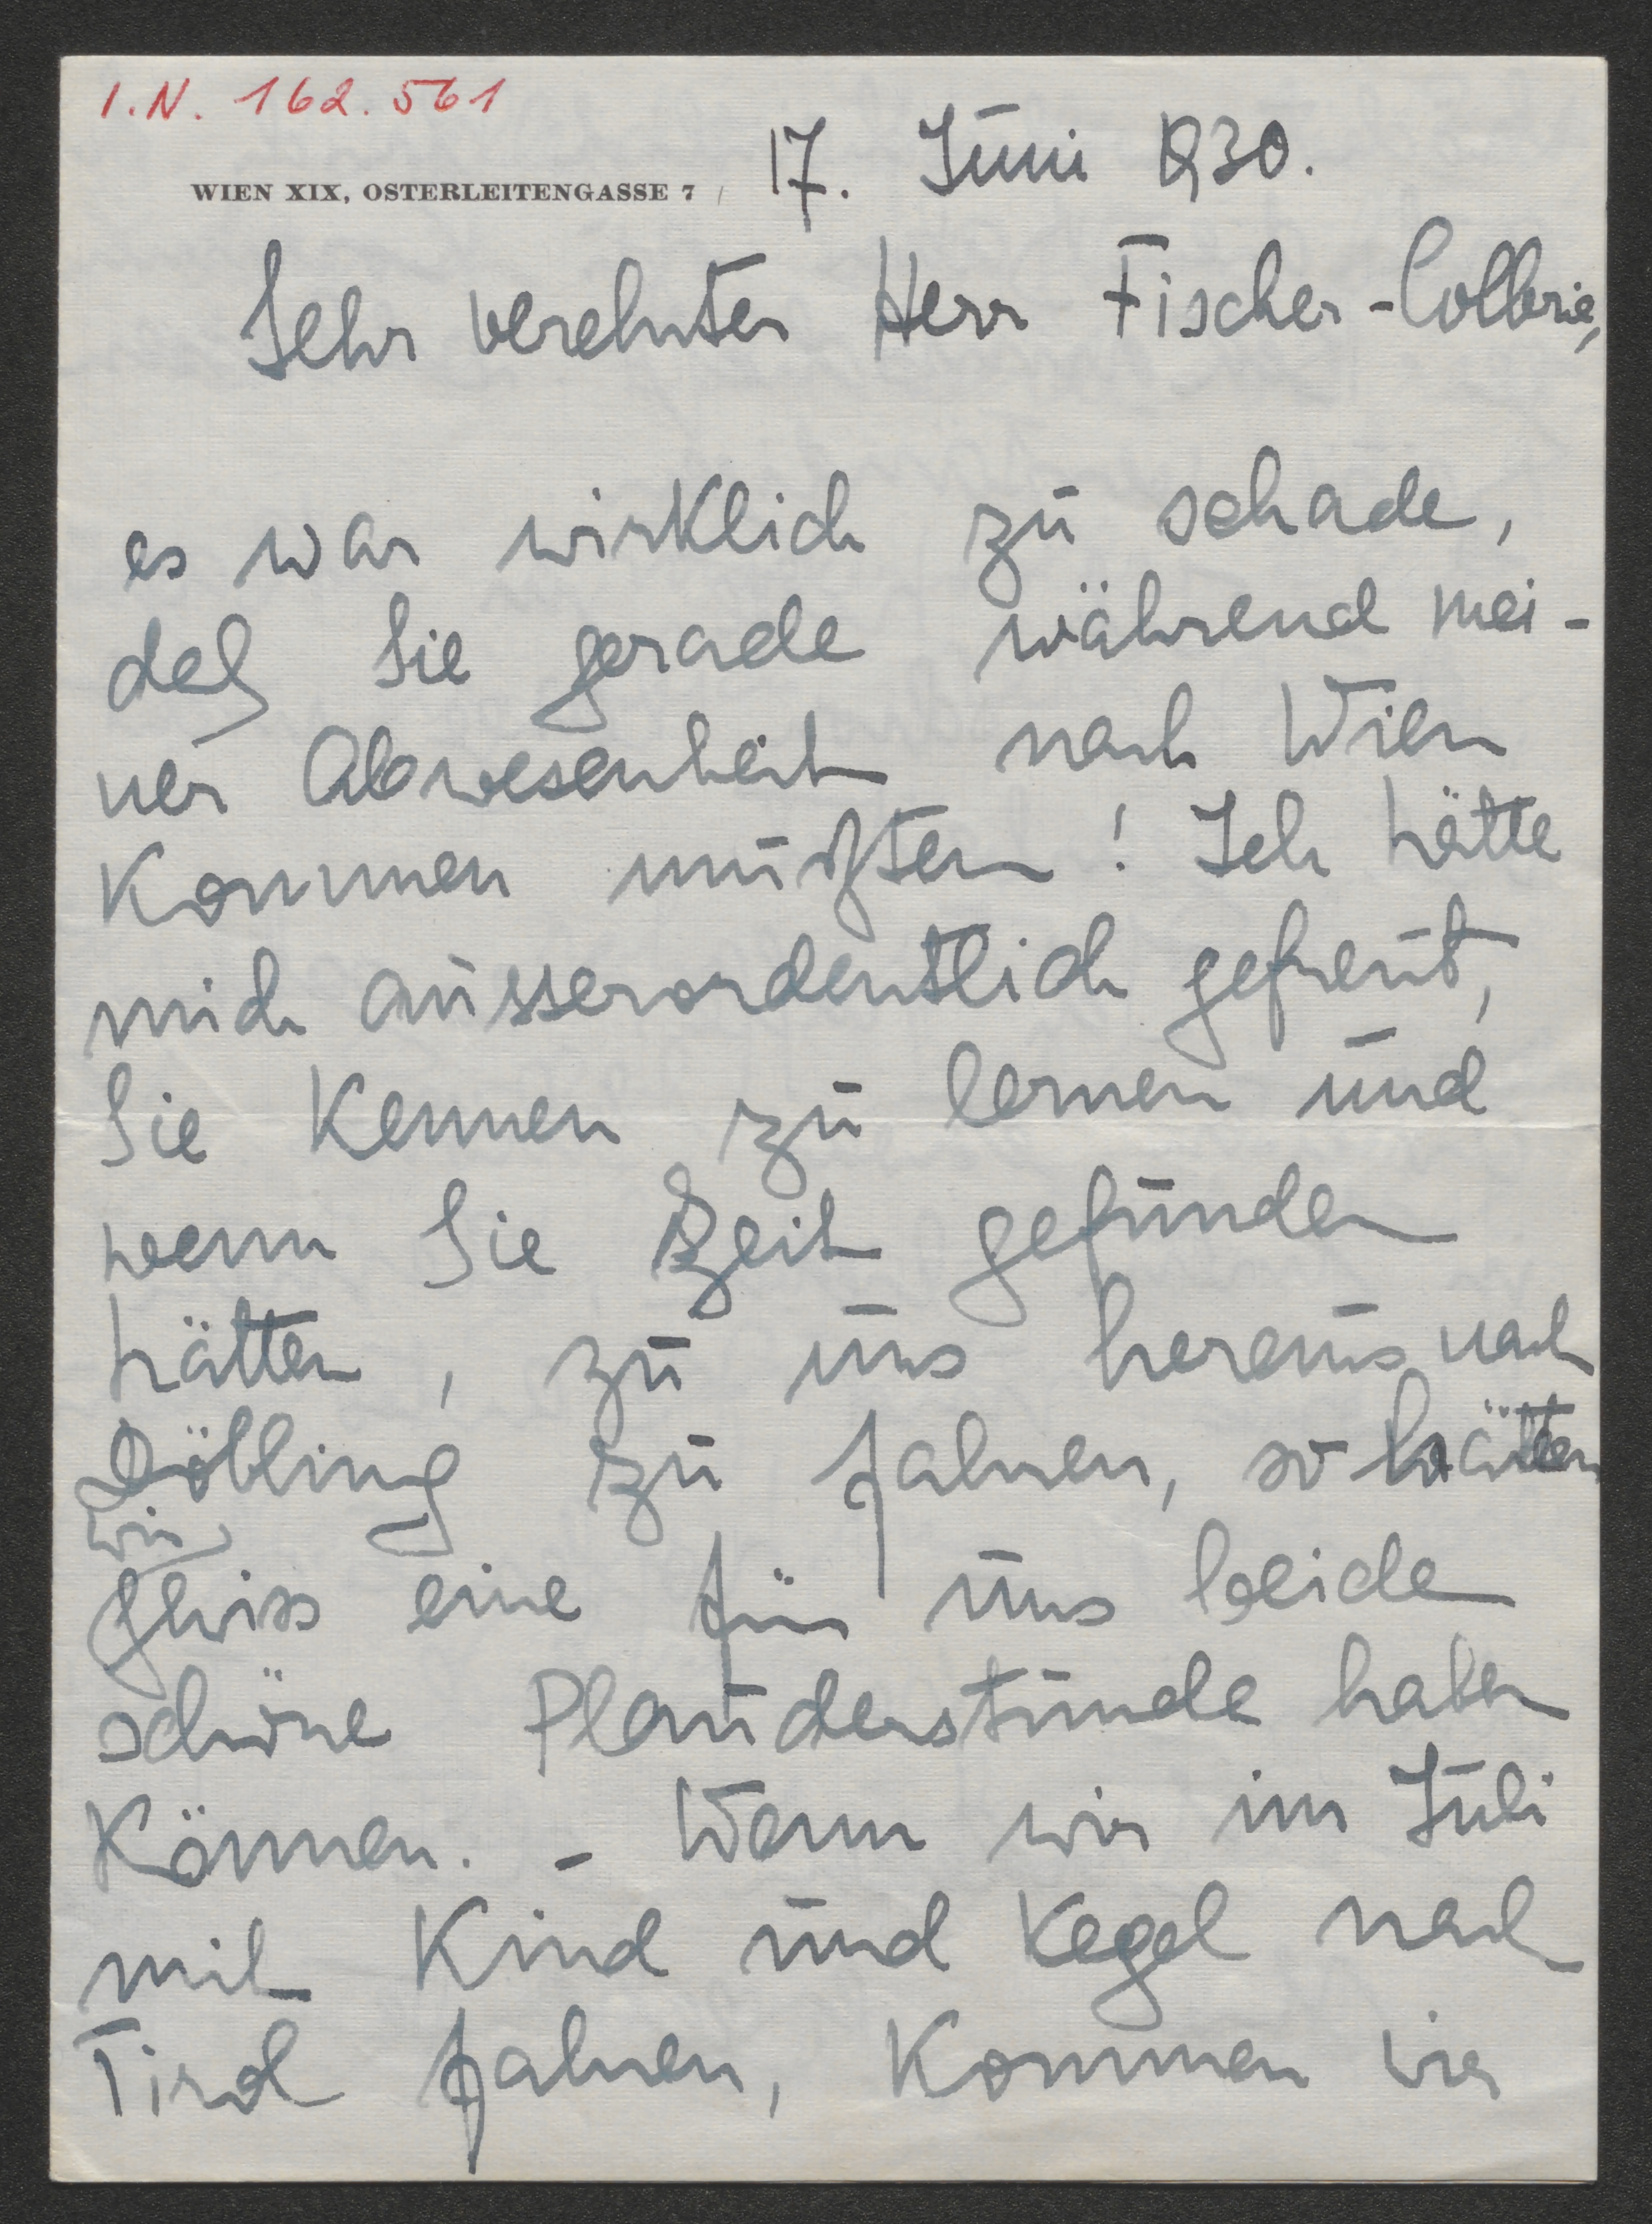 I.N. 162.561
17. Juni 1930.
WIEN XIX, OSTERLEITENGASSE 7
Sehr verehrter Herr Fischer-Colbrie,
es war wirklich zu schade,
daß Sie gerade während mei-
ner Abwesenheit nach Wien
kommen mußten! Ich hätte
mich ausserordentlich gefreut,
Sie kennen zu lernen und
wenn Sie Zeit gefunden
hätten, zu uns heraus nach
Döbling zu fahren, so hätten
wir
gewiss eine für uns beide
schöne Plauderstunde haben
können. – Wenn wir im Juli
mit Kind und Kegel nach
Tirol fahren, kommen wir